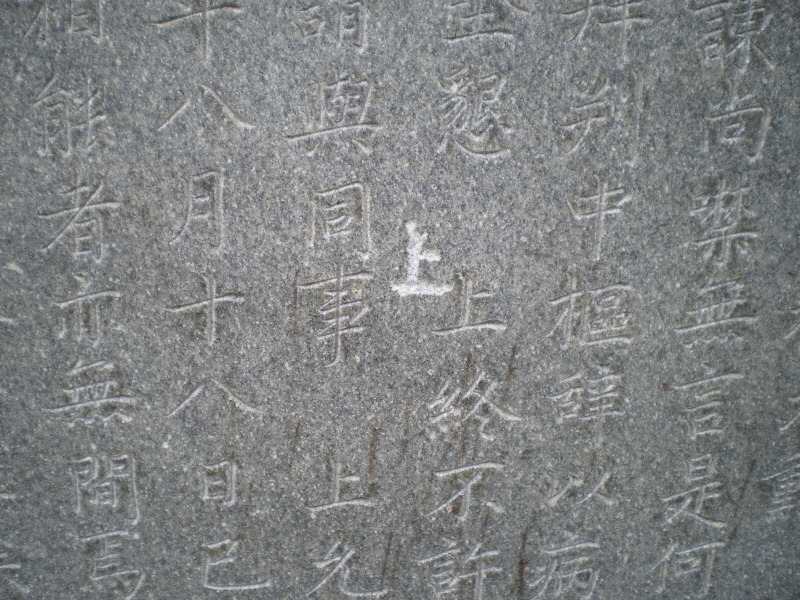 諫尚禁無言是何
拜判中樞辭以病
懇 上終不許
上
與同事 上允
年八月十八日已
相能者亦無間焉